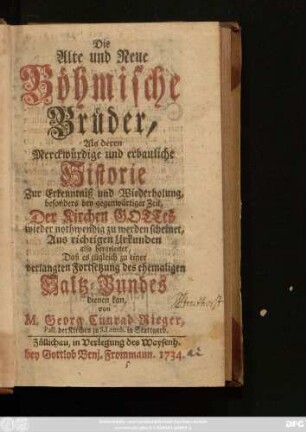 Die
Alte und Neue
Böhmische
Brüder,
Als deren
Merckwürdige und erbauliche
Historie
Zur Erkenntniß und Wiederholung,
besonders bey gegenwärtiger Zeit,
Der Kirchen GOTTes
wieder nothwendig zu werden scheinet,
Aus richtigen Urkunden
also begreiffet,
Daß es zugleich zu einer
verlangten Fortsetzung des ehemaligen
Saltz-Bundes
dienen kan,
von
M. Georg Cunrad Rieger,
Past. der Kirchen zu St. Leonh. in Stuttgart.
Züllichau, in Verlegung des Waysenh.
bey Gottlob Benj. Frommann. 1734.